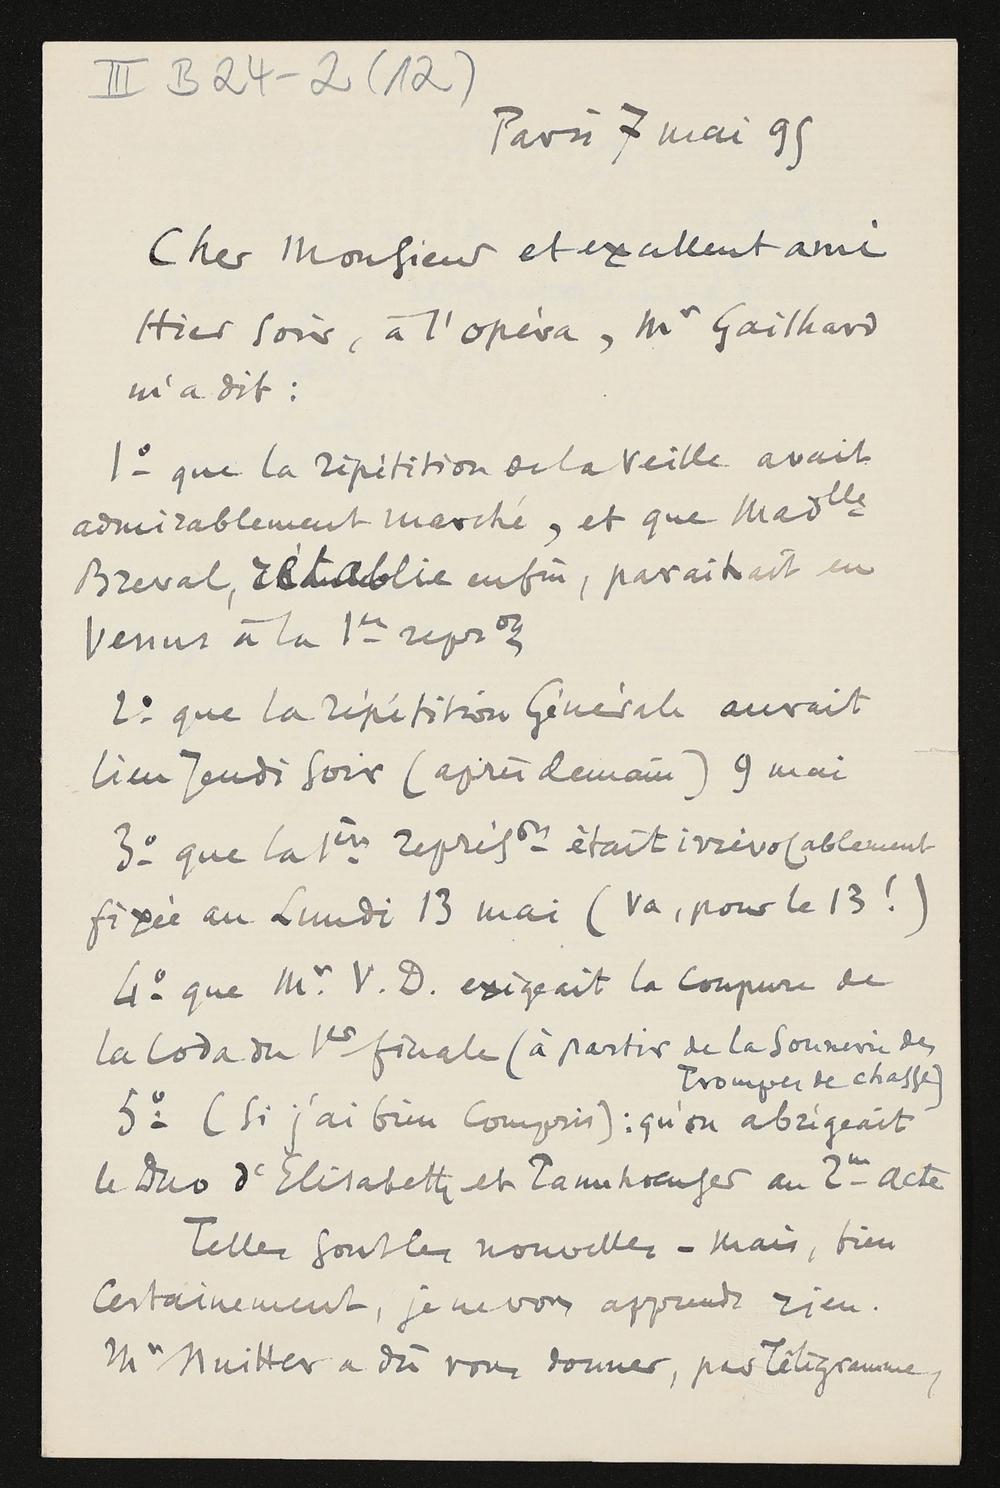 III B 24-2 (12)
Paris 7 mai 95
Cher Monsieur et excellent ami
Hier soir, à l'opéra, Mr Gailhard
m'a dit :
1º que la répétition de la veille avait
admirablement marché, et que Madlle
Breval, rétablie enfin, paraitrait en
Venus à la 1re repron
2º que la répétition Générale aurait
lieu Jeudi soir (après demain) 9 mai
3º que la 1ère représon était irrévocablement
fixée au Lundi 13 mai (Va, pour le 13 !)
4º que Mr. V. D. exigeait la coupure de
la Coda du 1er finale (à partir de la Sonnerie des
Trompes de chasse)
5º (si j'ai bien compris) : qu'on abrégeait
le Duo d'Elisabeth et Tannhoeuser au 2me acte
Telles sont les nouvelles - Mais, bien
certainement, je ne vous apprends rien.
Mr Nuitter a dû vous donner, par Télégramme,